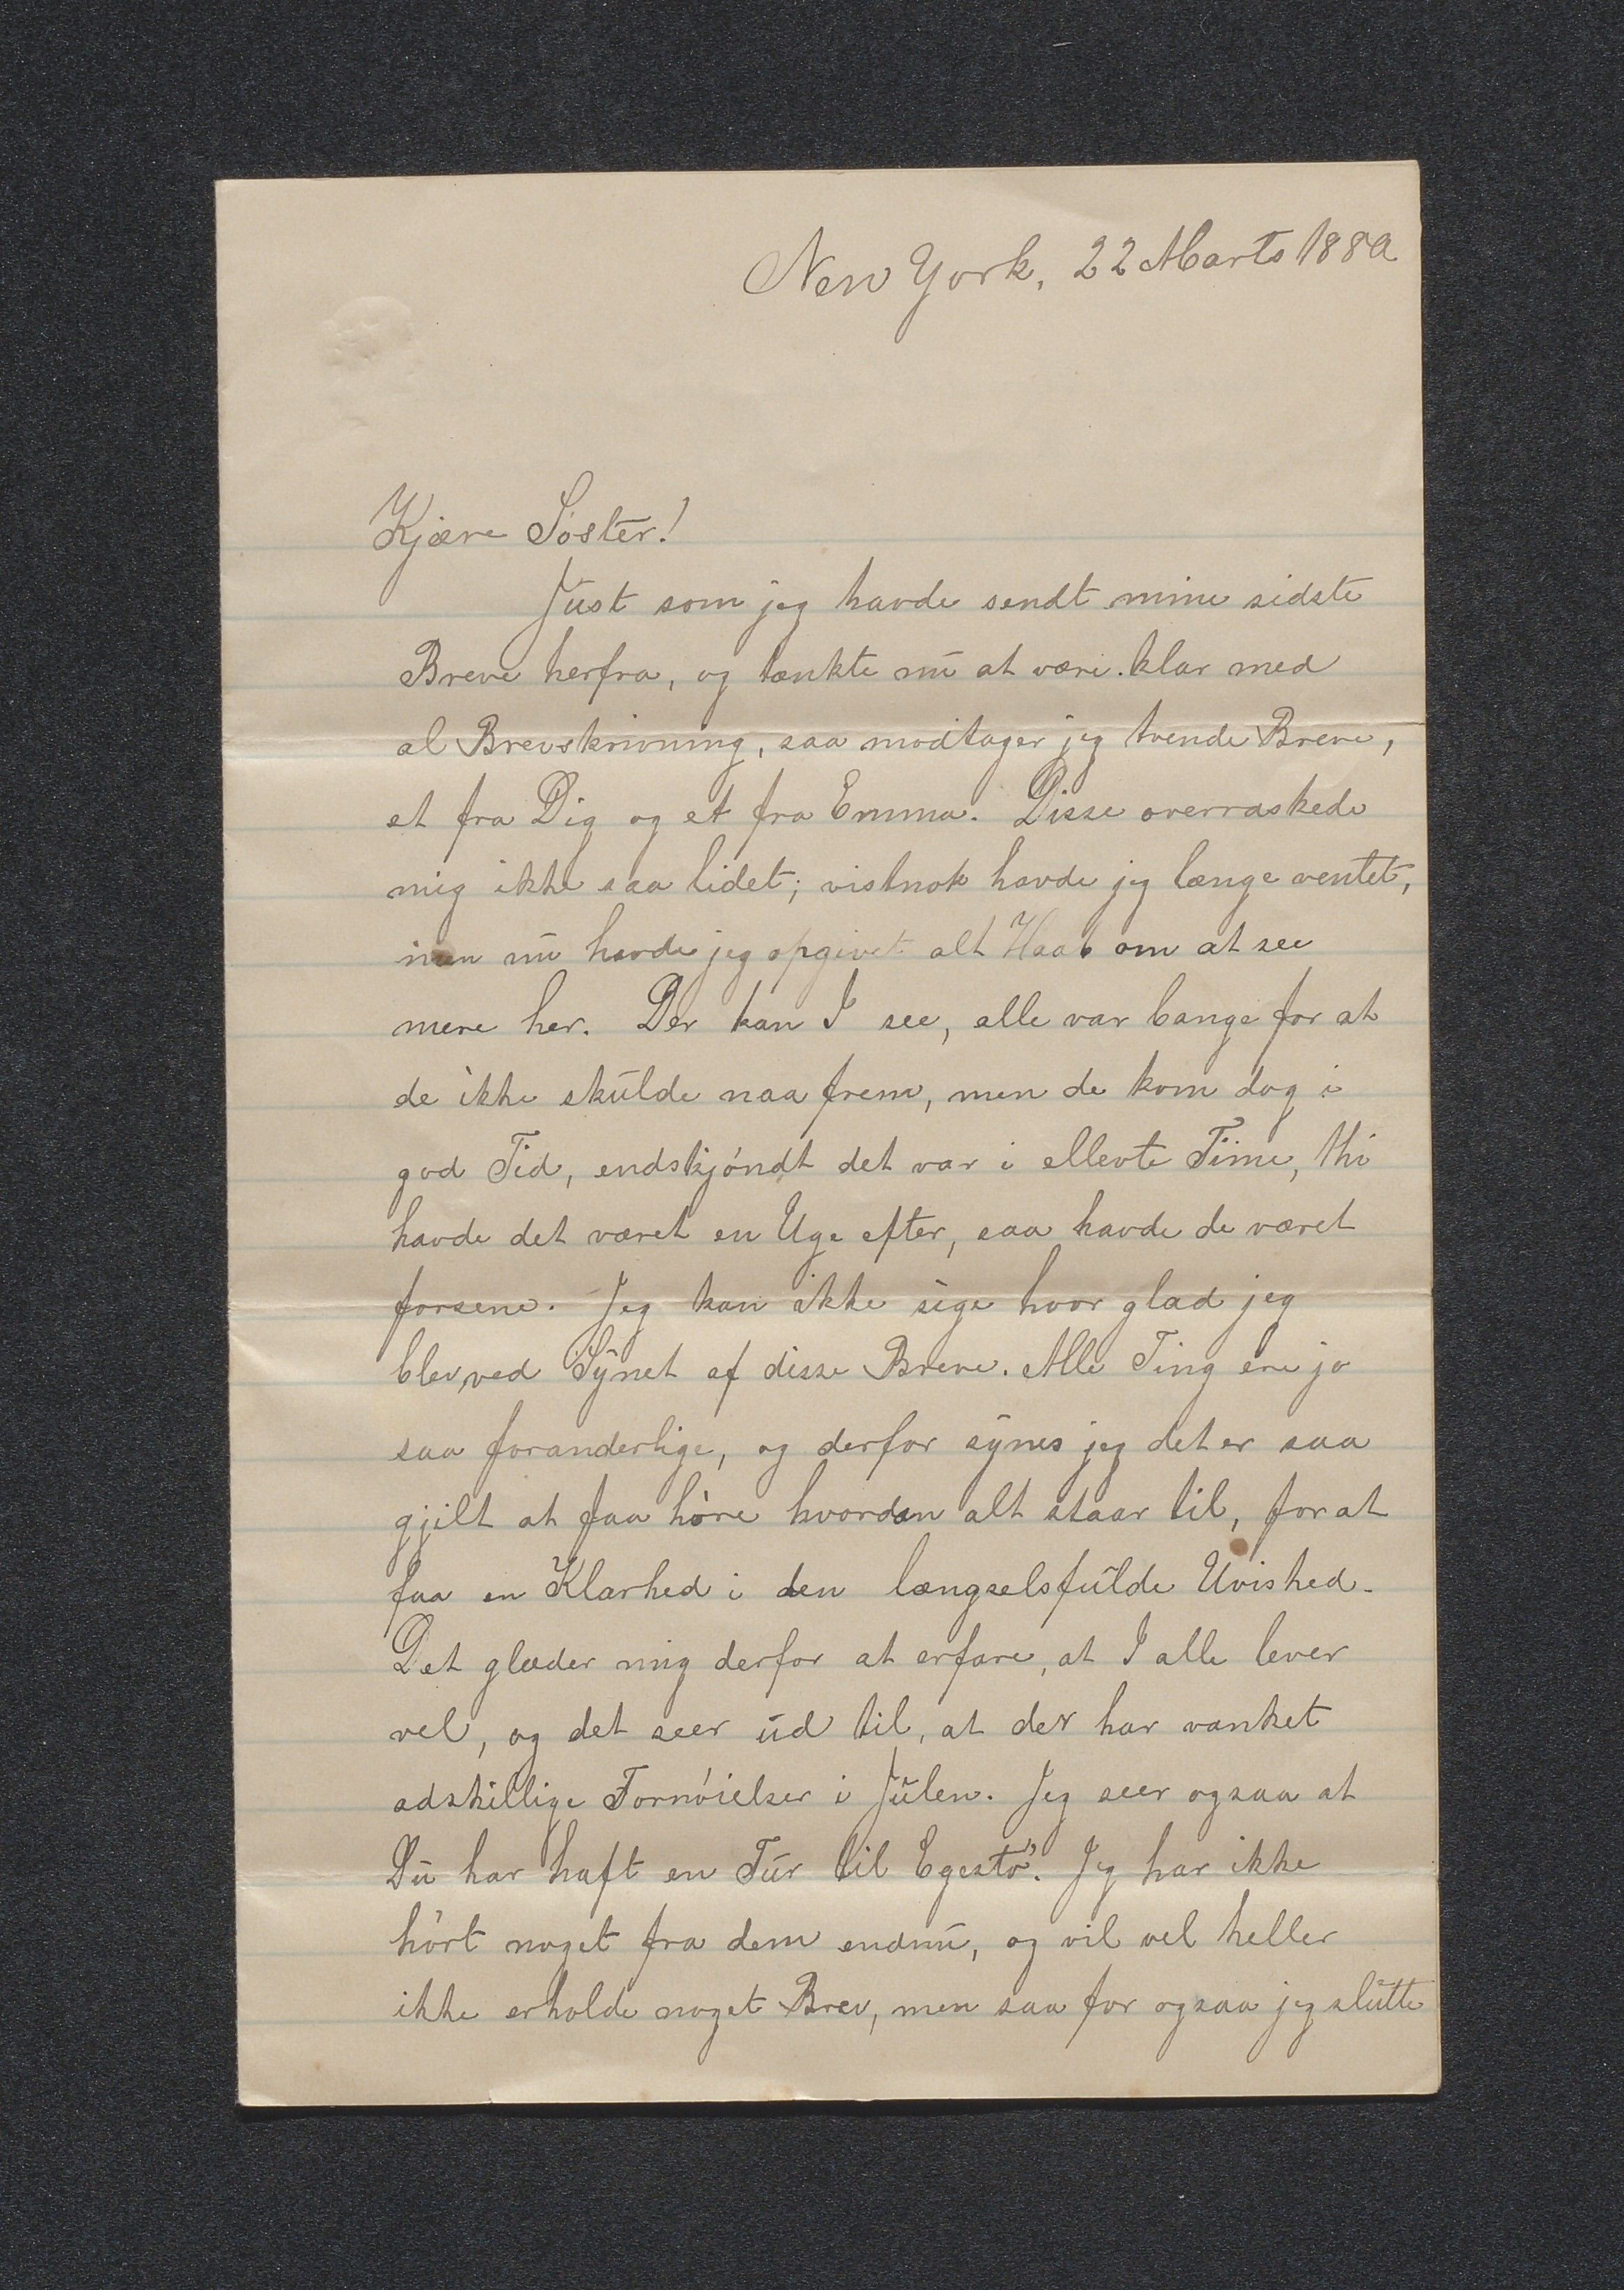 New York, 22 Marts 1882
Kjære Søster!
Just som jeg havde sendt mine sidste
Breve herfra, og tænkte nu at være klar med
al Brevskrivning, saa modtager jeg tvende Breve,
et fra Dig og et fra Emma. Disse overraskede
mig ikke saa lidet; vistnok havde jeg længe ventet,
men nu havde jeg opgivet alt Haab om at see
mere her. Der kan I see, alle var bange for at
de ikke skulde naa frem, men de kom dog i
god Tid, endskjøndt det var i ellevte Time, thi
havde det været en Uge efter, saa havde de været
forsene. Jeg kan ikke sige hvor glad jeg
blev ved Synet af disse Breve. Alle Ting ere jo
saa foranderlige, og derfor synes jeg det er saa
gjilt at faa høre hvordan alt staar til, for at
faa en Klarhed i den længselsfulde Uvished.
Det glæder mig derfor at erfare, at I alle lever
vel, og det seer ud til, at der har vanket
adskillige Fornøielser i Julen. Jeg seer ogsaa at
Du har haft en Tur til Egestø. Jeg har ikke
hørt noget fra dem endnu, og vil vel heller
ikke erholde noget Brev, men saa for ogsaa jeg slutte